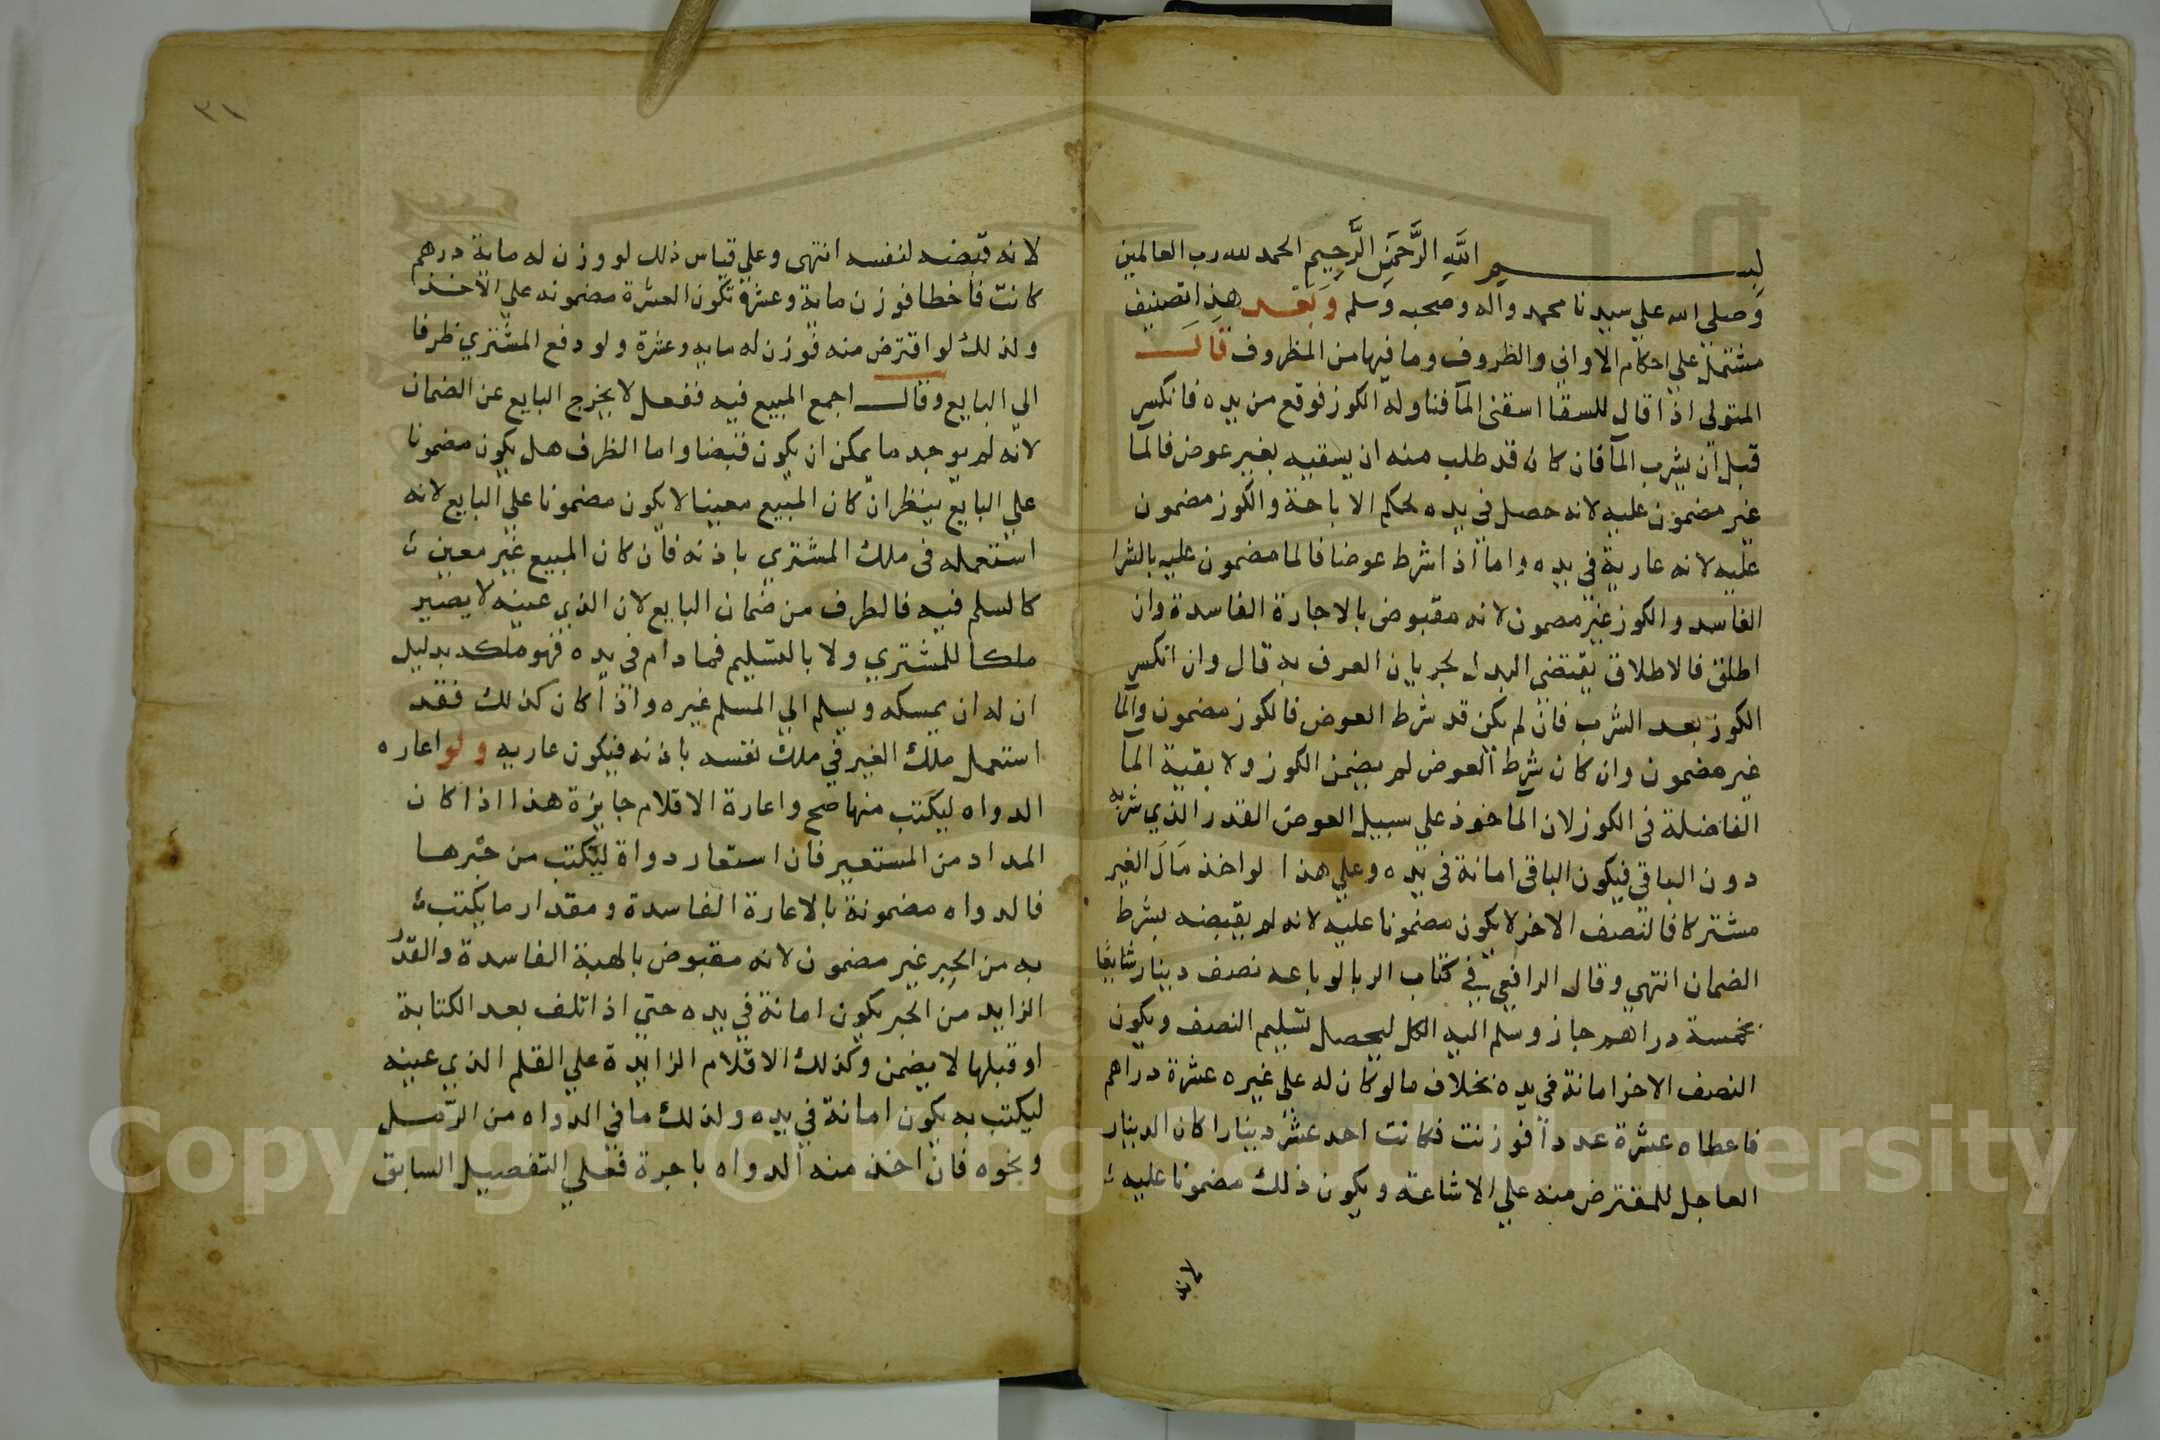 بسم الله الرَّحمَنِ الرَّحِيمِ الحمد لله رب العالمين
وَصلي الله علي سيدنا محمد واله وصحبه وَسلم وَبَعْد هذا تصنيف
مشتمل علي احكام الاواني والظروف وما فيها من المظروف قالَ
المتولى اذا قال للسقا اسقنى المآ فناوله الكوز فوقع من يده فانكسر
قبل ان يشرب المآ فان كان قد طلب منه ان يسقيه بغير عوض فالما
غير مضمون عليه لانه حصل في يده بحكم الاباحة والكوز مضمون
عليه لانه عارية في يده واما اذا شرط عوضا فالما مضمون عليه بالشرا
الفاسد والكوز غير مضمون لانه مقبوض بالاجارة الفاسدة وان
اطلق فالاطلاق يقتضى البدل لجريان العرف به قال وان انكسر
الكوز بعد الشرب فان لم يكن قد شرط العوض فالكوز مضمون والما
غير مضمون وان كان شرط العوض لم يضمن الكوز ولا بقية الما
الفاضلة في الكوز لان الماخوذ علي سبيل العوض القدر الذي شربه
دون الباقي فيكون الباقى امانة في يده وعلي هذا لو اخذ مَالَ الغير
مشتركا فالنصف الاخر لا يكون مضمونا عليه لانه لم يقبضه بشرط
الضمان انتهي وقال الرافعي في كتاب الربا لو باعه نصف دينار شايعًا
بخمسة دراهم جاز وسلم اليه الكل ليحصل تسليم النصف ويكون
النصف الاخر امانة في يده بخلاف ما لو كان له علي غيره عشرة دراهم
فاعطاه عشرة عدداً فوزنت فكانت احد عشر دينارا كان الدينار
العاجل للمقترض منه علي الاشاعة ويكون ذلك مضمونا عليه
لانه
٣١
لانه قبضه لنفسه انتهى وعلي قياس ذلك لو وزن له ماية درهم
كانت فاخطا فوزن ماية وعشرة تكون العشرة مضمونه علي الاخذ
ولذلك لو اقترض منه فوزن له مايه وعشرة ولو دفع المشتري ظرفا
الي البايع وقال اجمع المبيع فيه ففعل لا يخرج البايع عن الضمان
لانه لم يوجد ما يمكن ان يكون قبضا واما الظرف هل يكون مضمونا
علي البايع ينظر ان كان المبيع معينا لا يكون مضمونا علي البايع لانه
استعمله في ملك المشتري باذنه فان كان المبيع غير معين
كالسلم فيه فالطرف من ضمان البايع لان الذي عينه لا يصير
ملكا للمشتري ولا بالتسليم فما دام في يده فهو ملكه بدليل
ان له ان يمسكه ويسلم الي المسلم غيره واذا كان كذلك فقد
استعمل ملك الغير في ملك نفسه باذنه فيكون عاريه ولو اعاره
الدواه ليكتب منها صح واعارة الاقلام جايزة هذا اذا كان
المداد من المستعير فان استعار دواة ليكتب من حبرها
فالدواه مضمونة بالاعارة الفاسدة ومقدار ما يكتب
به من الحبر غير مضمون لانه مقبوض بالهبة الفاسدة والقدر
الزايد من الحبر يكون امانة في يده حتي اذا تلف بعد الكتابة
او قبلها لا يضمن وكذلك الاقلام الزايدة علي القلم الذي عينه
ليكتب به يكون امانة في يده ولذلك ما في الدواه من الرّمل
ونحوه فان اخذ منه الدواه باجرة فعلي التفصيل السابق
Copyright © King Saud University